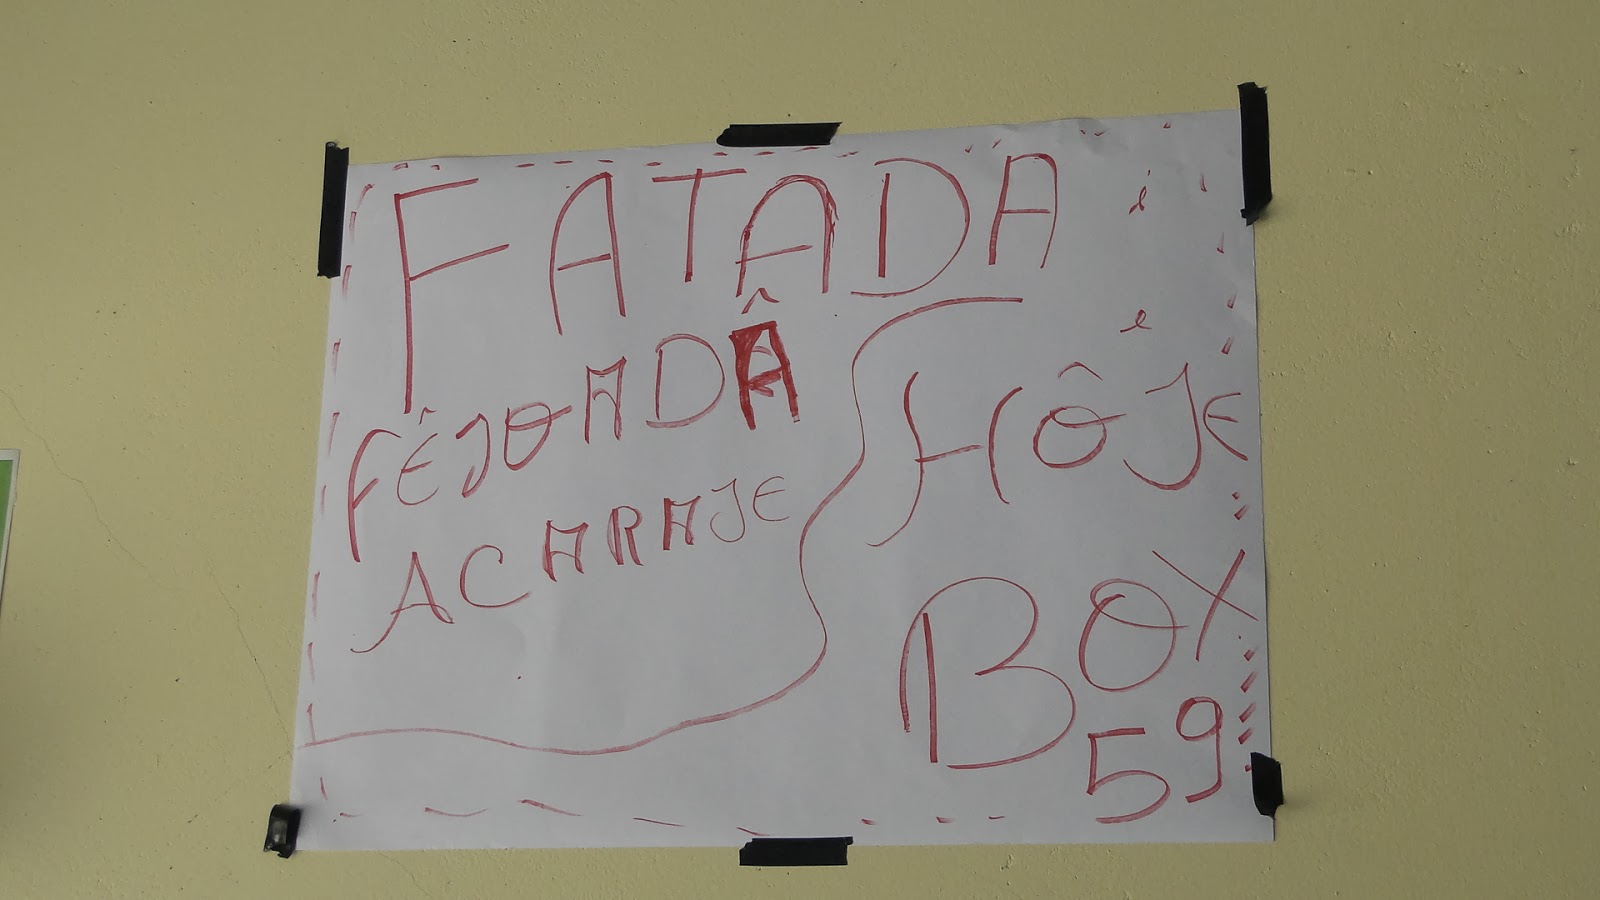 FATADA
FÊJOADÂ
ACARAJE
HÔJE
BOX
59